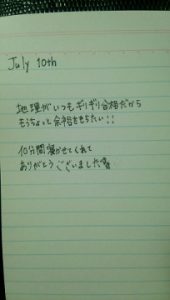 July 10th
地理がいつもギリギリ合格だから
もうちょっと余裕をもちたい!!
10分間寝かせてくれて
ありがとうございました